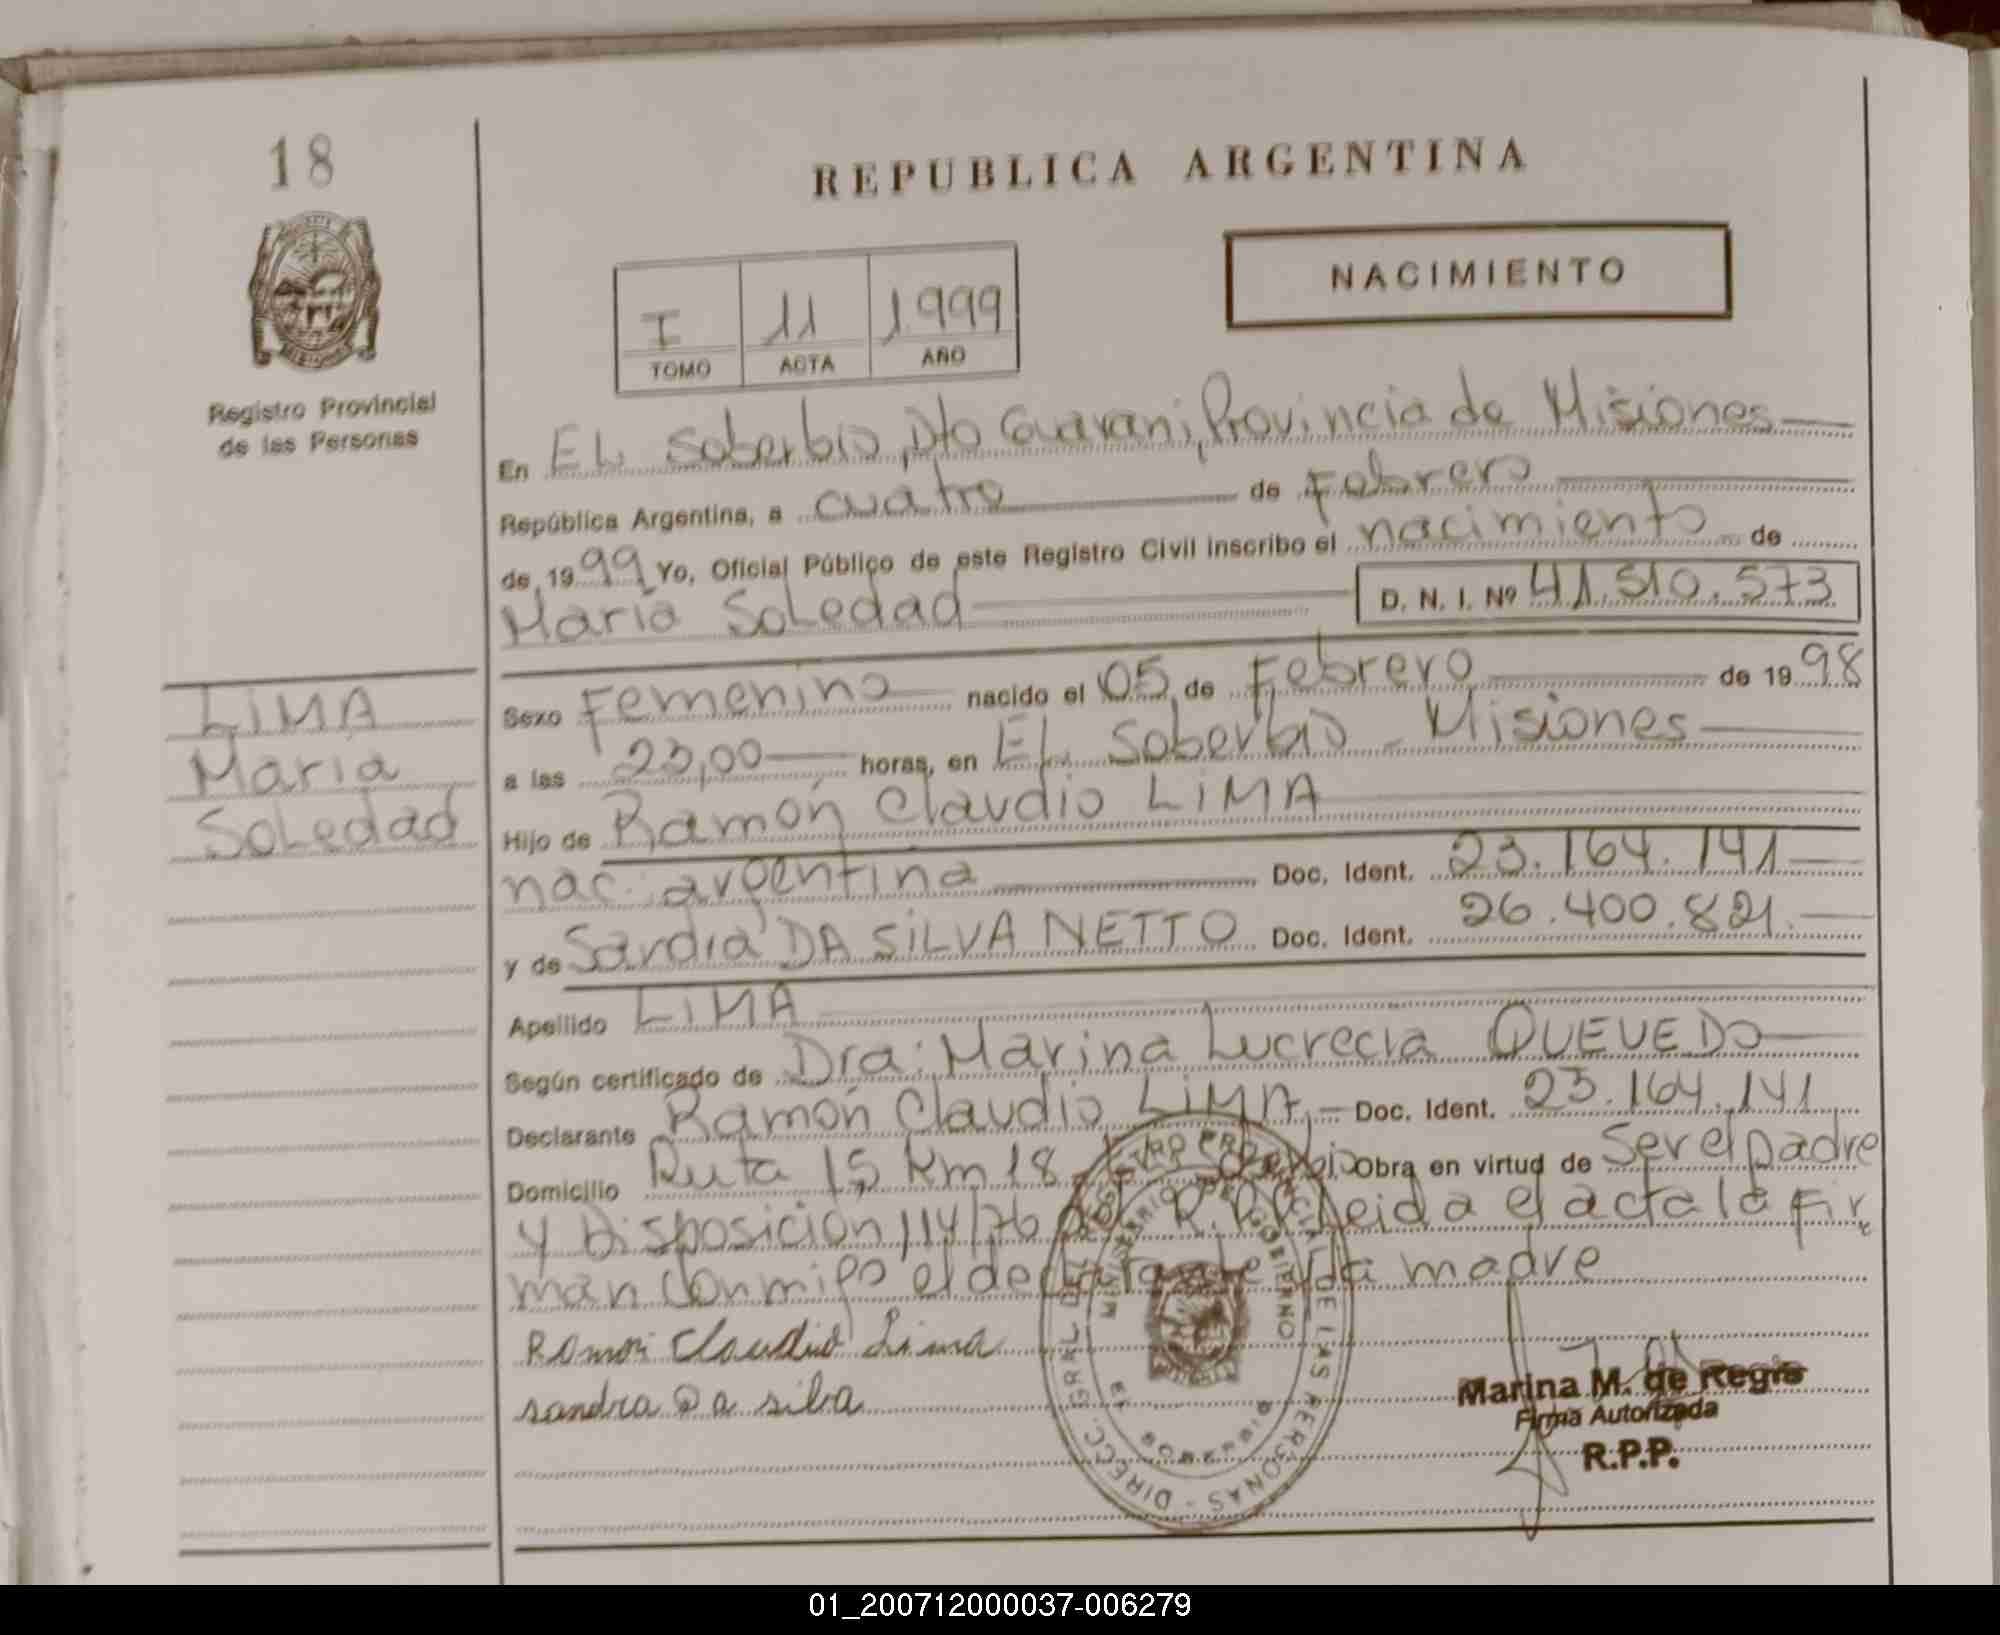 18
REPUBLICA ARGENTINA
NACIMIENTO
I 11 1.999
TOMO ACTA AÑO
Registro Provincial
de las Personas
En EL Soberbio, Dto Guarani, Provincia de Misiones
República Argentina, a cuatro de Febrero
de 1999 Yo, Oficial Público de este Registro Civil inscribo el nacimiento de
María Soledad D. N. I. Nº 41.510.573
LIMA
María
Soledad
Sexo Femenino nacido el 05 de Febrero de 1998
a las 23,00 horas, en EL Soberbio - Misiones
Hijo de Ramón Claudio LIMA
nac. argentina Doc. Ident. 23.164.141
y de Sandra DA SILVA NETTO Doc. Ident. 26.400.821.
Apellido LIMA
Según certificado de Dra: Marina Lucrecia QUEVEDO
Declarante Ramón Claudio LIMA Doc. Ident. 23.164.141
Domicilio Ruta 15 Km 18 Obra en virtud de Ser el padre
y Disposición 114/76 Leida el acta la fir
man conmigo el declarante y la madre
Ramon Claudio Lima
sandra Da silba
DIRECC. GRAL DEL REGISTRO PROVINCIAL DE LAS PERSONAS
MINISTERIO DE GOBIERNO
EL SOBERBIO
Marina M. de Regis
Firma Autorizada
R.P.P.
01_200712000037-006279